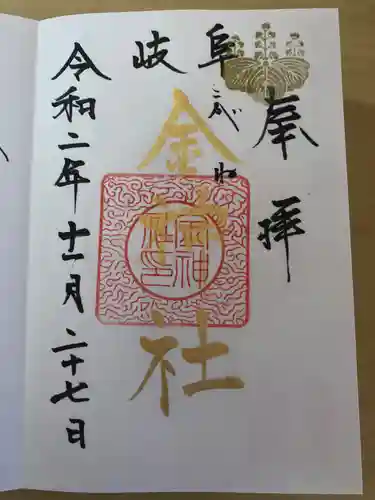 奉拝
岐阜
こがね
金神社
令和二年十一月二十七日